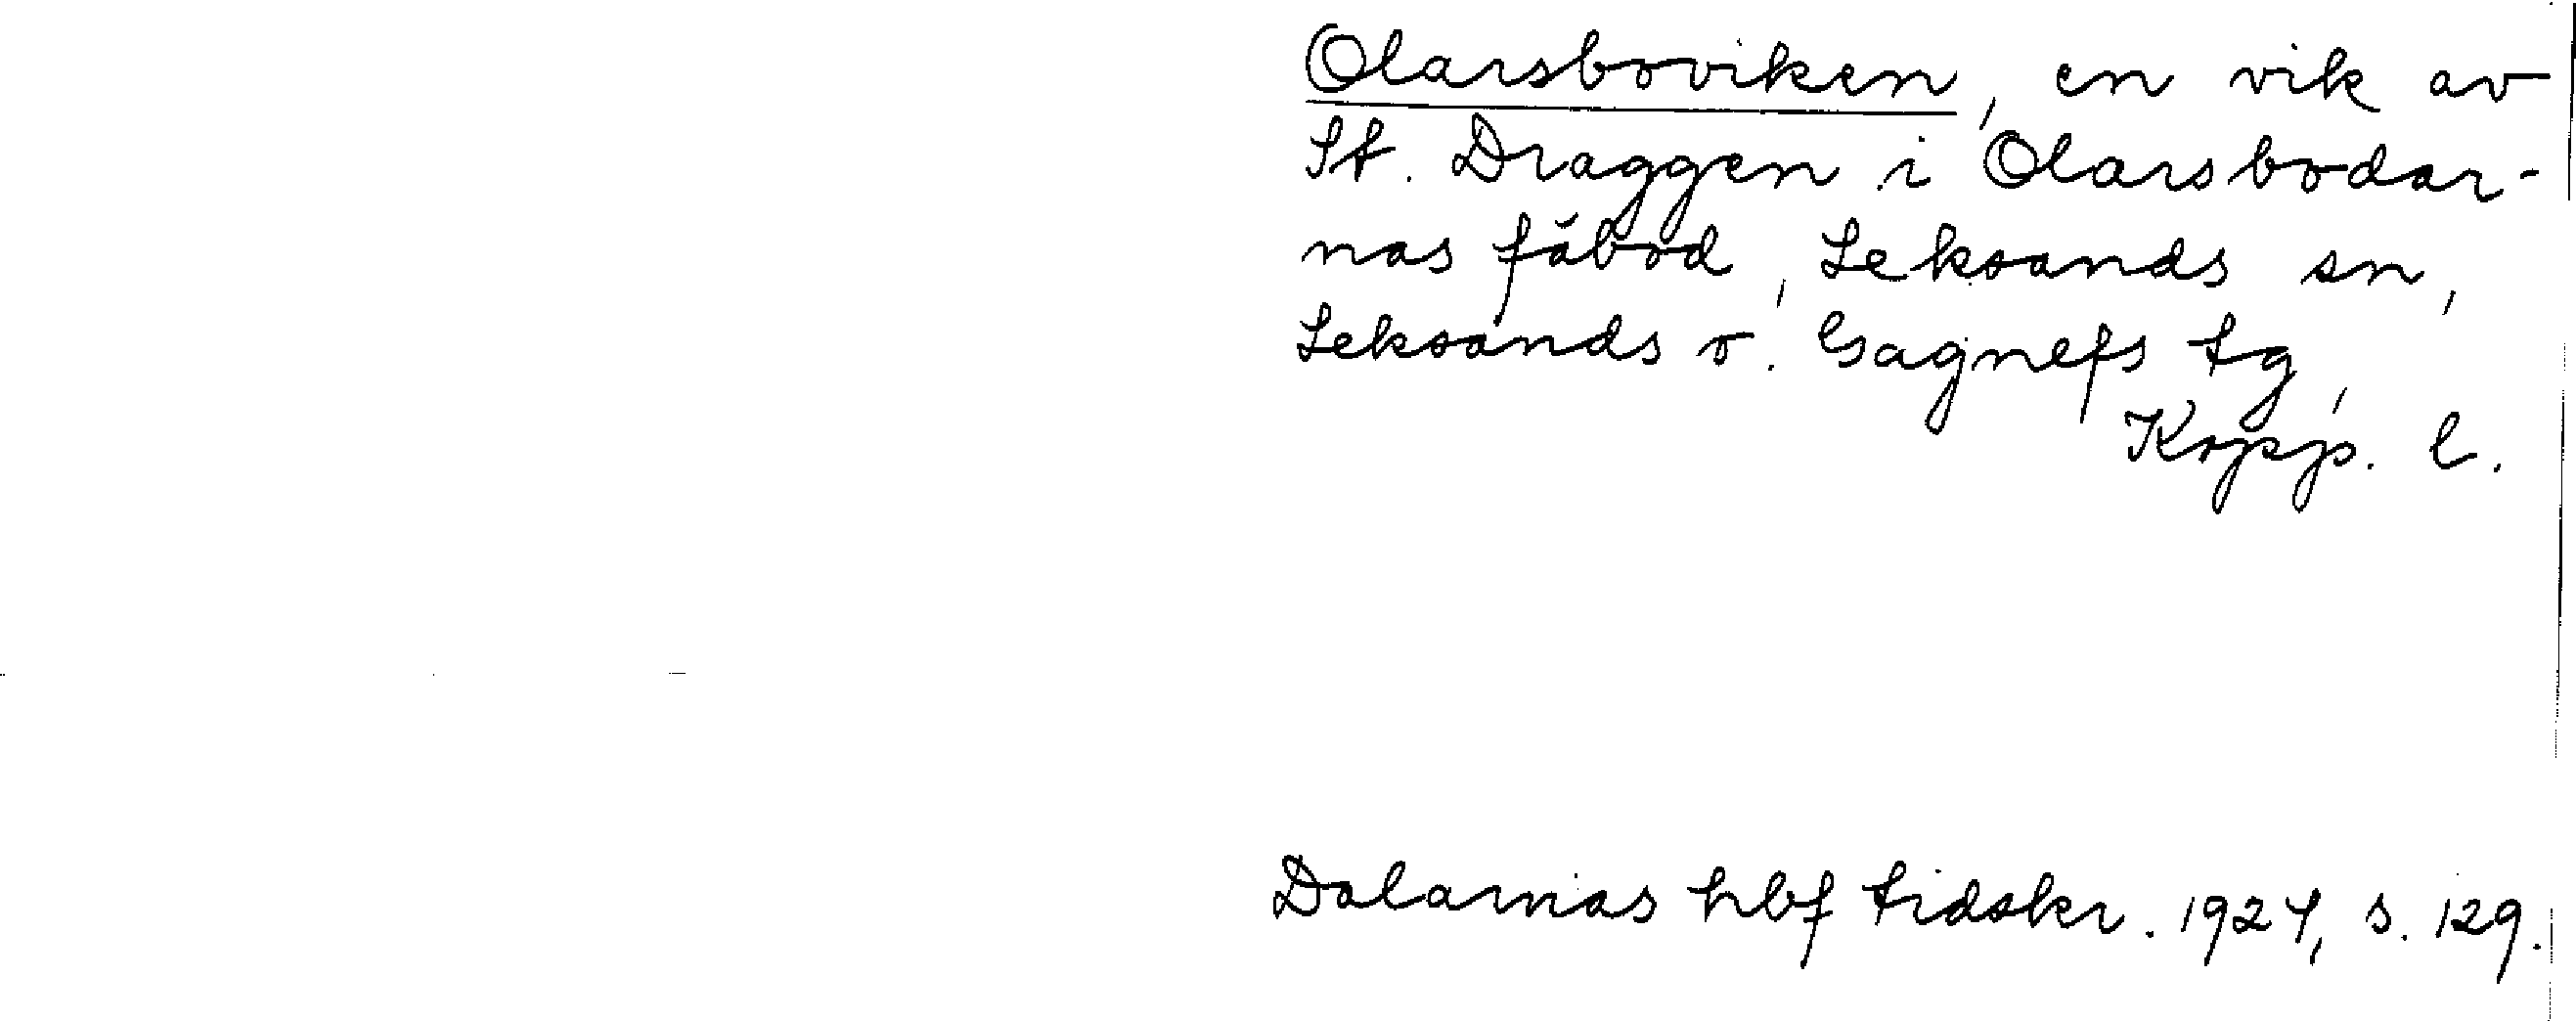 Olarsboviken, en vik av
St. Draggen i Olarsbodar-
nas fäbod, Leksands sn,
Leksands o. Gagnefs tg,
Kopp. l.
Dalarnas hbf tidskr. 1924, s. 129.